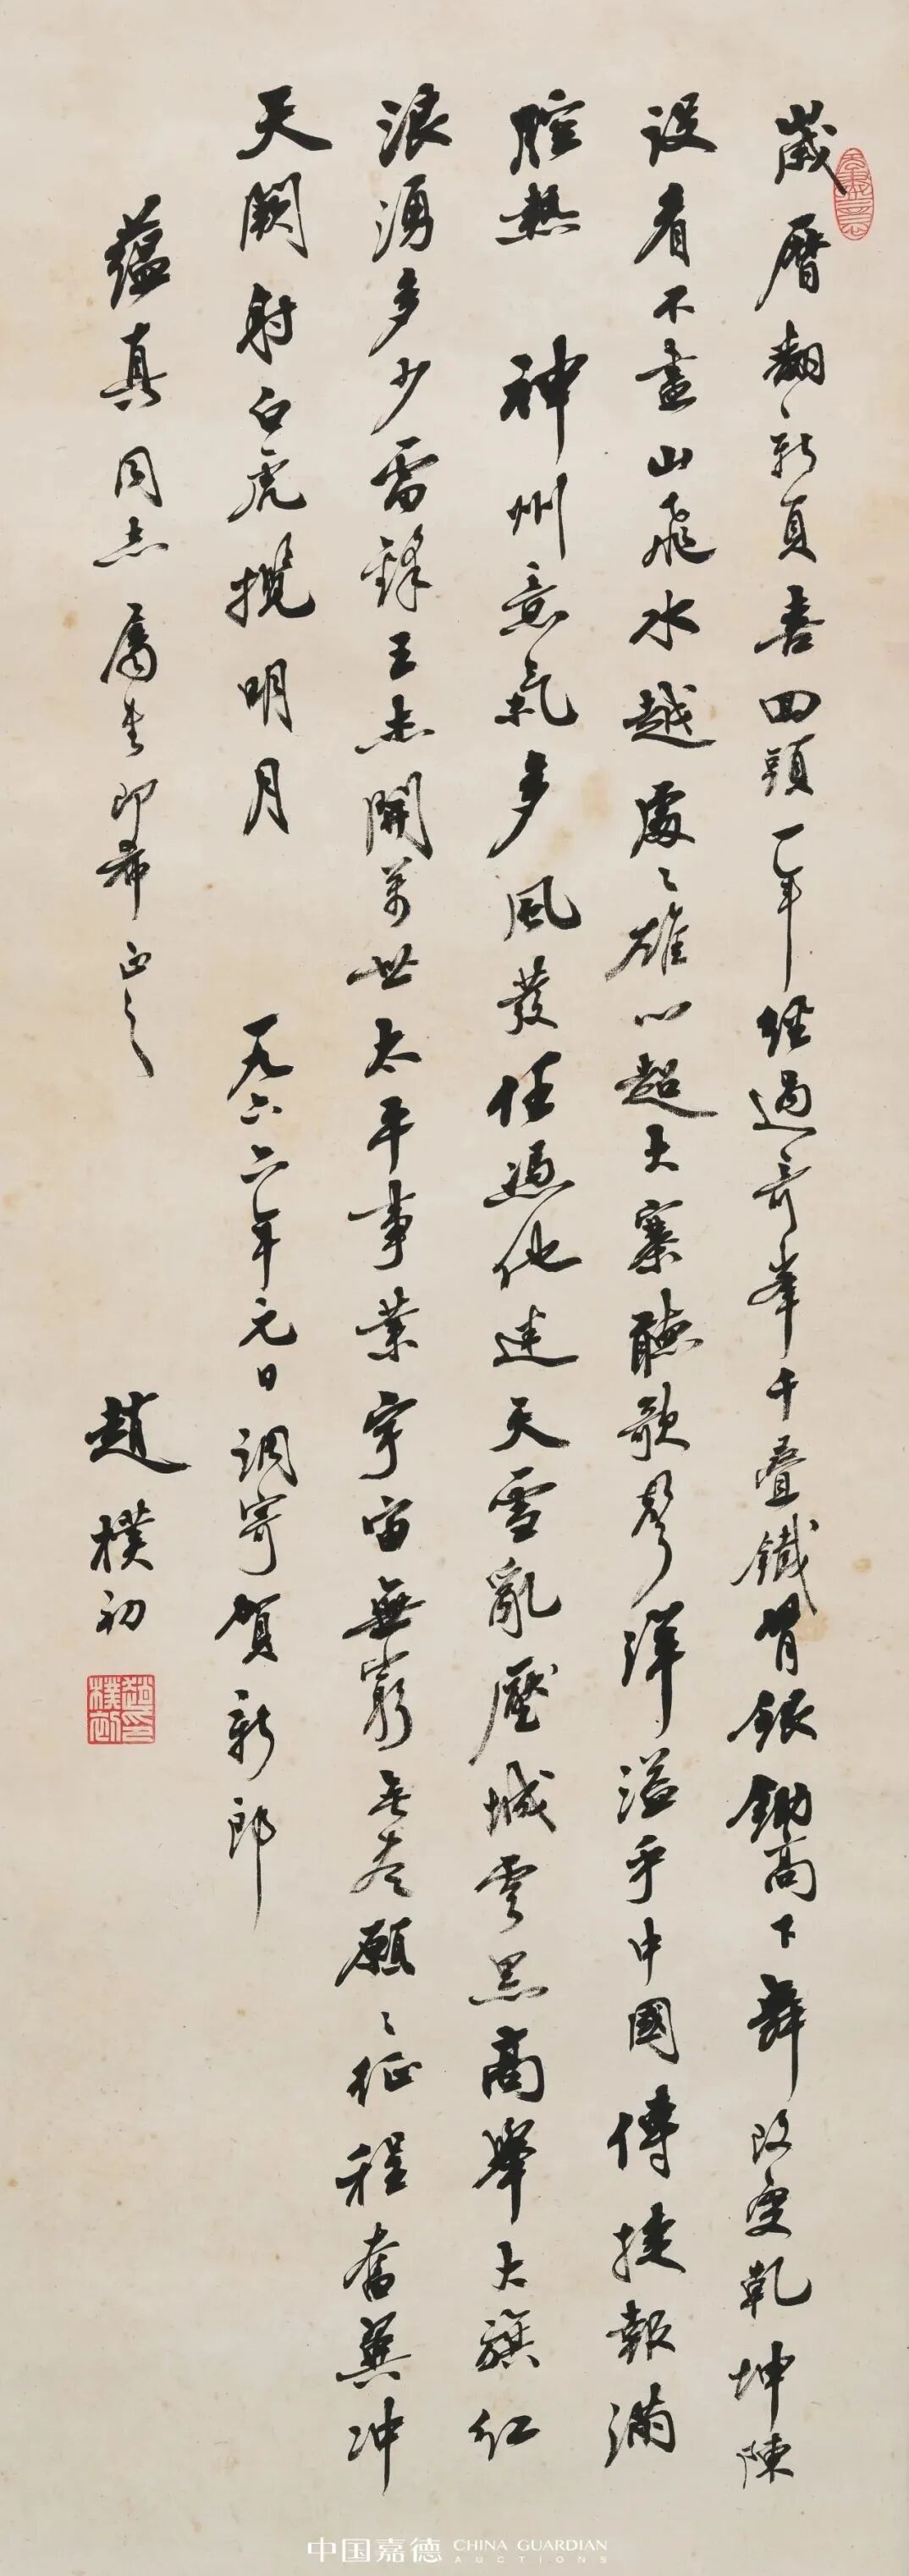 歲曆翻新頁喜回頭一年經過奇峯千疊鐵臂銀鋤高下舞改變乾坤陳
設看不盡山飛水越處〻雄心超大寨聽歌聲洋溢乎中國傳捷報滿
腔熱　神州意氣多風發任憑他迷天雪亂壓城雲黑高舉大旗紅
浪湧多少雷鋒王杰開萬世太平事業宇宙無窮無盡願〻征程奮翼冲
天闕射白虎攬明月　一九六六年元日調寄賀新郎
蘊真同志屬書即希正之
趙樸初
趙樸初
中国嘉德 CHINA GUARDIAN AUCTIONS